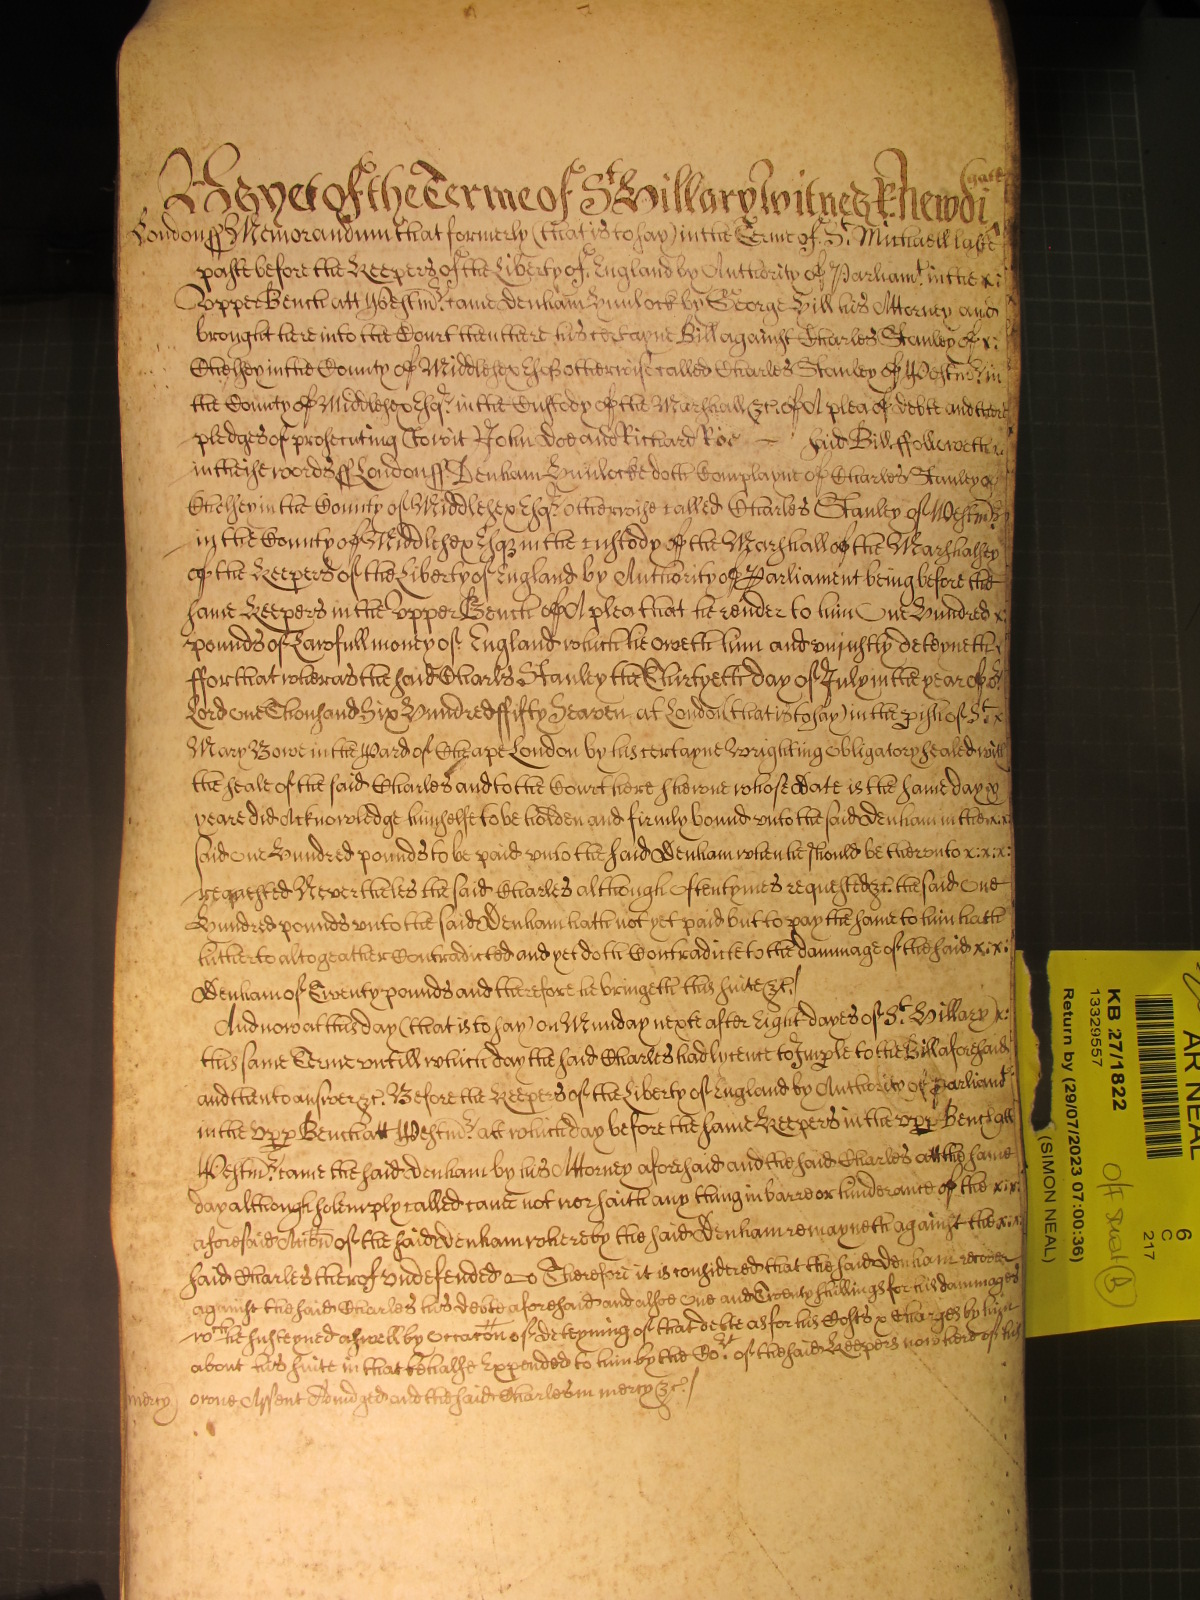 As yet of the Terme of St Hillary Witnes R: Newdi
gate
London ss Memorandum that formerly (that is to say) in the Terme of St. Michaell last
paste before the Keepers of the Liberty of England by Authority of Parliamt. in the x:
Upper Bench att Westmr. came Denham Hunlock by George Hill his Attorney and
brought here into the Court then there his certayne Bill against Charles Stanley of x:
Chelsey in the County of Middlesex Esqr otherwise called Charles Stanley of Westmr. in
the County of Middlesex Esqr. in the Custody of the Marshall &c. of A plea of debte and there
pledges of prosecuting (to wit) John Doe and Richard Roe — said Bill ffolloweth
in theise words ss London ss Denham Hunlocke doth Complayne of Charles Stanley of
Chelsey in the County of Middlesex Esqr. otherwise called Charles Stanley of Westmr.
in the County of Middlesex Esqr in the custody of the Marshall of the Marshalsey
of the Keepers of the Liberty of England by Authority of Parliament being before the
same Keepers in the Upper Bench of A plea that he render to him One Hundred x:
pounds of Lawfull money of England which he oweth him and uniustly deteyneth
ffor that wheras the said Charles Stanley the Thirtyeth day of July in the year of or
Lord one Thousand Six Hundred ffifty Seaven at London (that is to say) in the pish of St. x
Mary Bowe in the Ward of Cheape London by his certayne Wrighting obligatory sealed with
the seale of the said Charles and to the Court here shewne whose date is the same day &
yeare did Acknowledge himselfe to be holden and firmly bound unto the said Denham in the x:x:
said One Hundred pounds to be paid unto the said Denham when he should be therunto x:x:x:
requested Nevertheles the said Charles although oftentymes requested &c. the said One
Hundred pounds unto the said Denham hath not yet paid but to pay the same to him hath
hitherto altogeather Contradicted and yet doth Contradicte to the dammage of the said x:x:
Denham of Twenty pounds and therefore he bringeth this suite &c./
And now at this day (that is to say) on Munday nexte after Eight dayes of St. Hillary x:
this same Terme untill which day the said Charles had lycence to Imple to the Bill aforesaid
and then to answer &c. Before the Keepers of the Liberty of England by Authority of Parliamt.
in the Upp Bench att Westmr. att which day before the same Keepers in the Upp Bench att
Westmr. came the said Denham by his Attorney aforesaid and the said Charles att the same
day although solemply called came not nor saith any thing in barre or hinderance of the x:x:
aforesaid Acton of the said Denham whereby the said Denham remayneth against the x:x:
said Charles therof Undefended Therefore it is considered that the said Denham recover
against the said Charles his debte aforesaid and alsoe One and Twenty shillings for his dammages
wch he susteyned aswell by Occacon of deteyning of that debte as for his Costs & Charges by him
about his suite in that behalfe Expended to him by the Cort of the said Keepers now here of his
mercy owne Assent Aiudged and the said Charles in mercy &c./
AR NEAL
6
C
217
KB 27/1822
13329557
Return by (29/07/2023 07:00:36)
(SIMON NEAL)